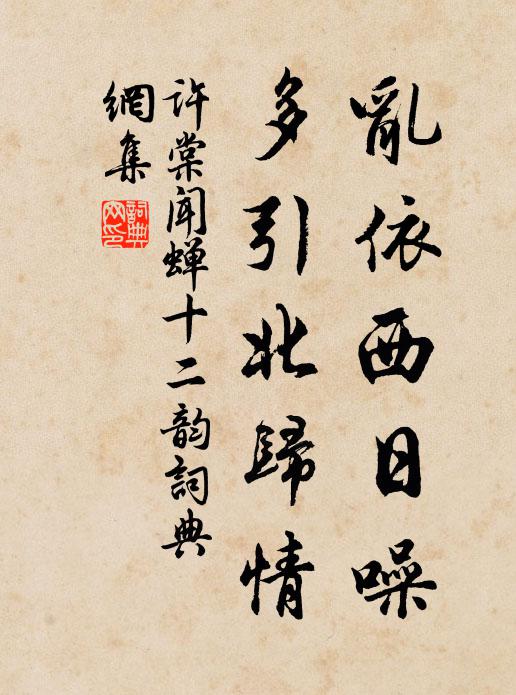 亂依西日噪
多引北歸情
许棠闻蝉十二韵詞典
網集
詞典
网印